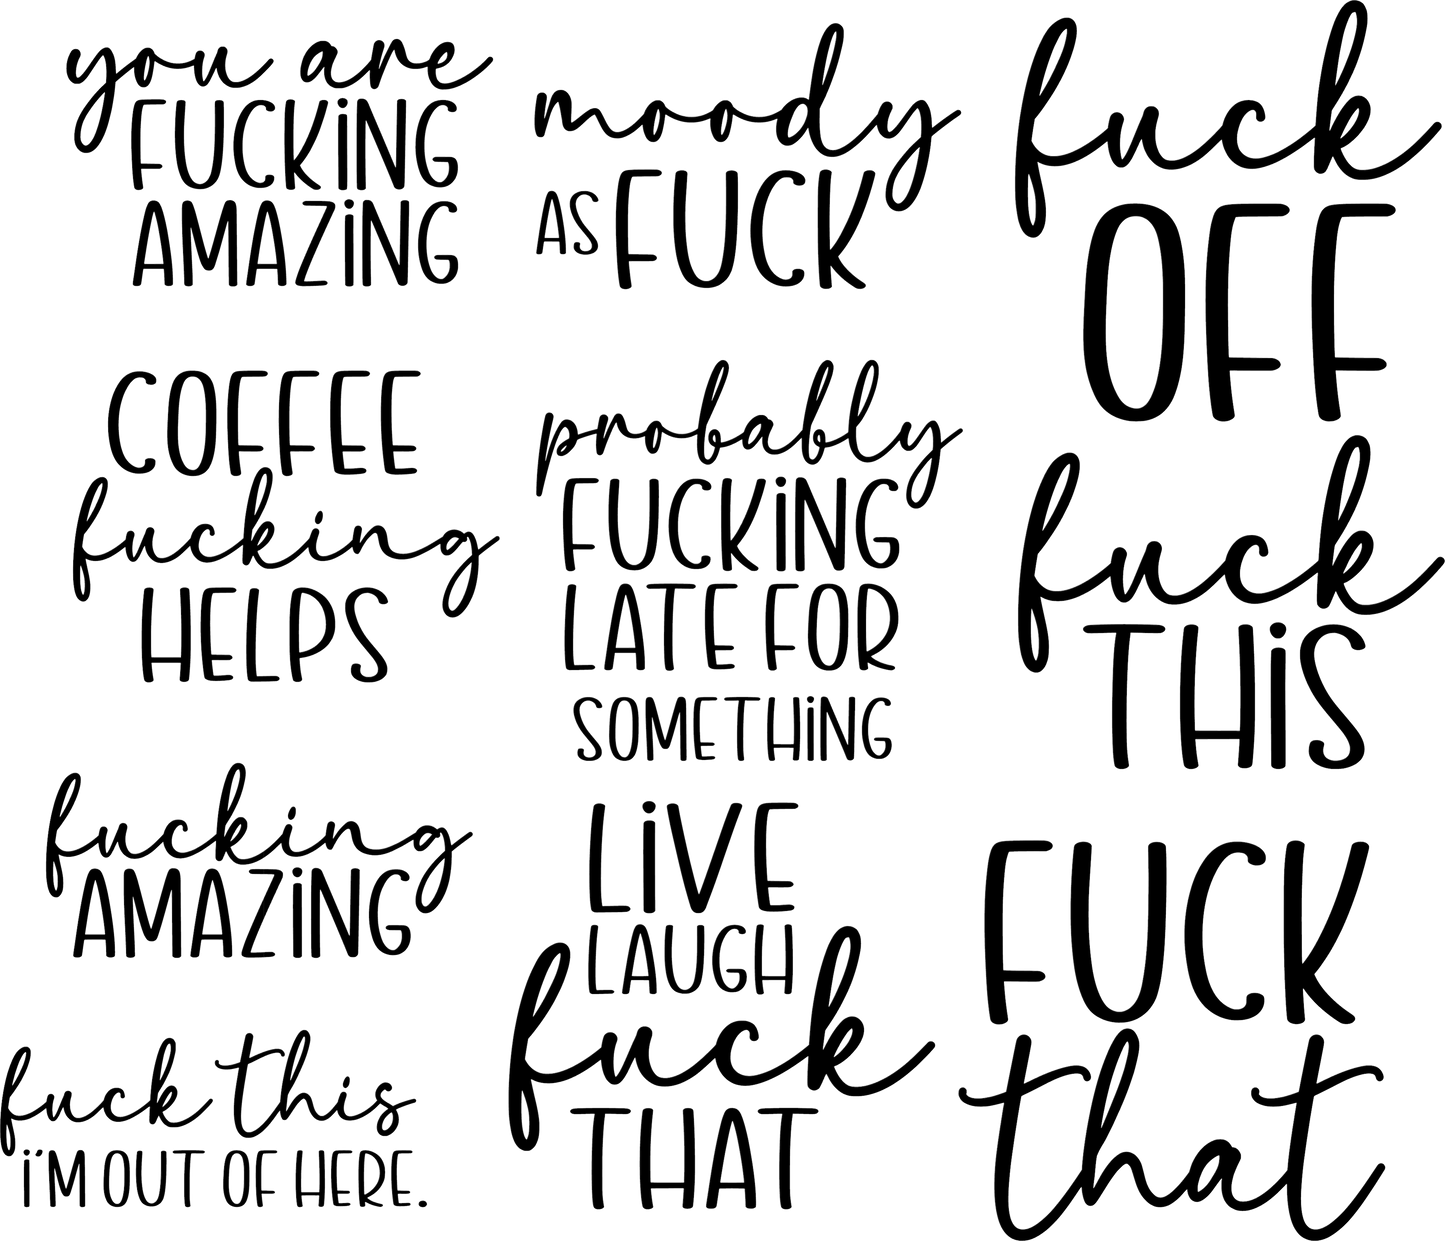 you are
FUCKiNG
AMAZiNG
COFFEE
fucking
HELPS
fucking
AMAZiNG
fuck this
i'M OUT OF HERE.
moody
AS FUCK
probably
FUCKiNG
LATE FOR
SOMETHiNG
LiVE
LAUGH
fuck
THAT
fuck
OFF
fuck
THiS
FUCK
that